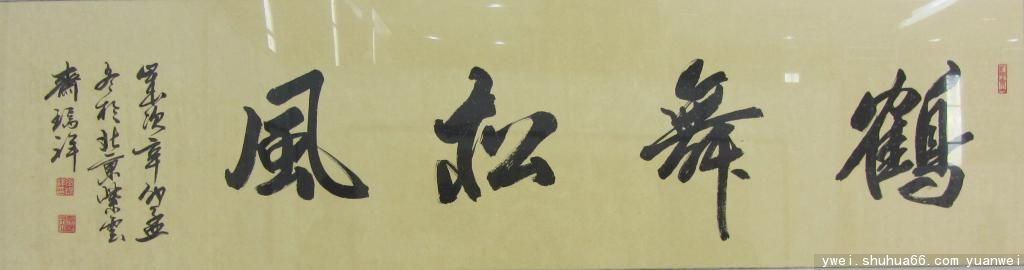 鶴舞松風
歲次辛卯孟
冬於北京紫雲
齋瑞祥
ywei.shuhua66.com yuanwei